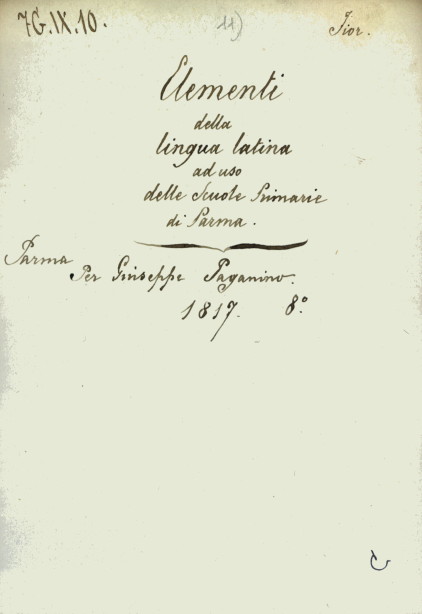 7G.IX.10.
11)
Fior.
Elementi
della
lingua latina
ad uso
delle Scuole Primarie
di Parma.
Parma
Per Giuseppe Paganino.
1817. 8.°